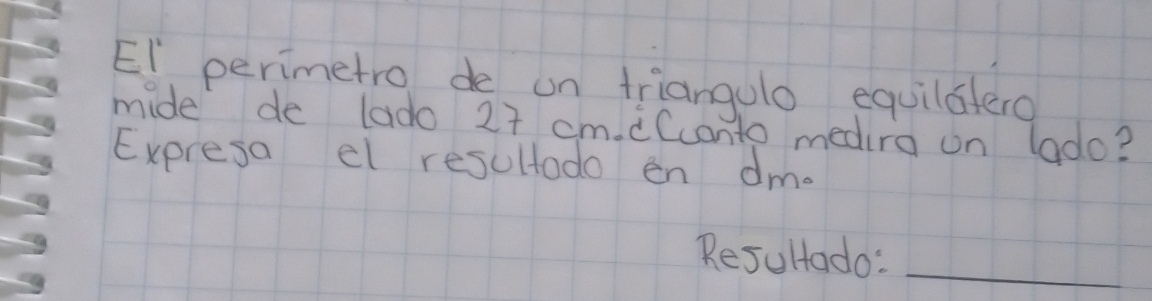 El perímetro de un triangulo equilátero
mide de lado 27 cm. ¿Cuanto medira un lado?
Expresa el resultado en dm.
Resultado: ______